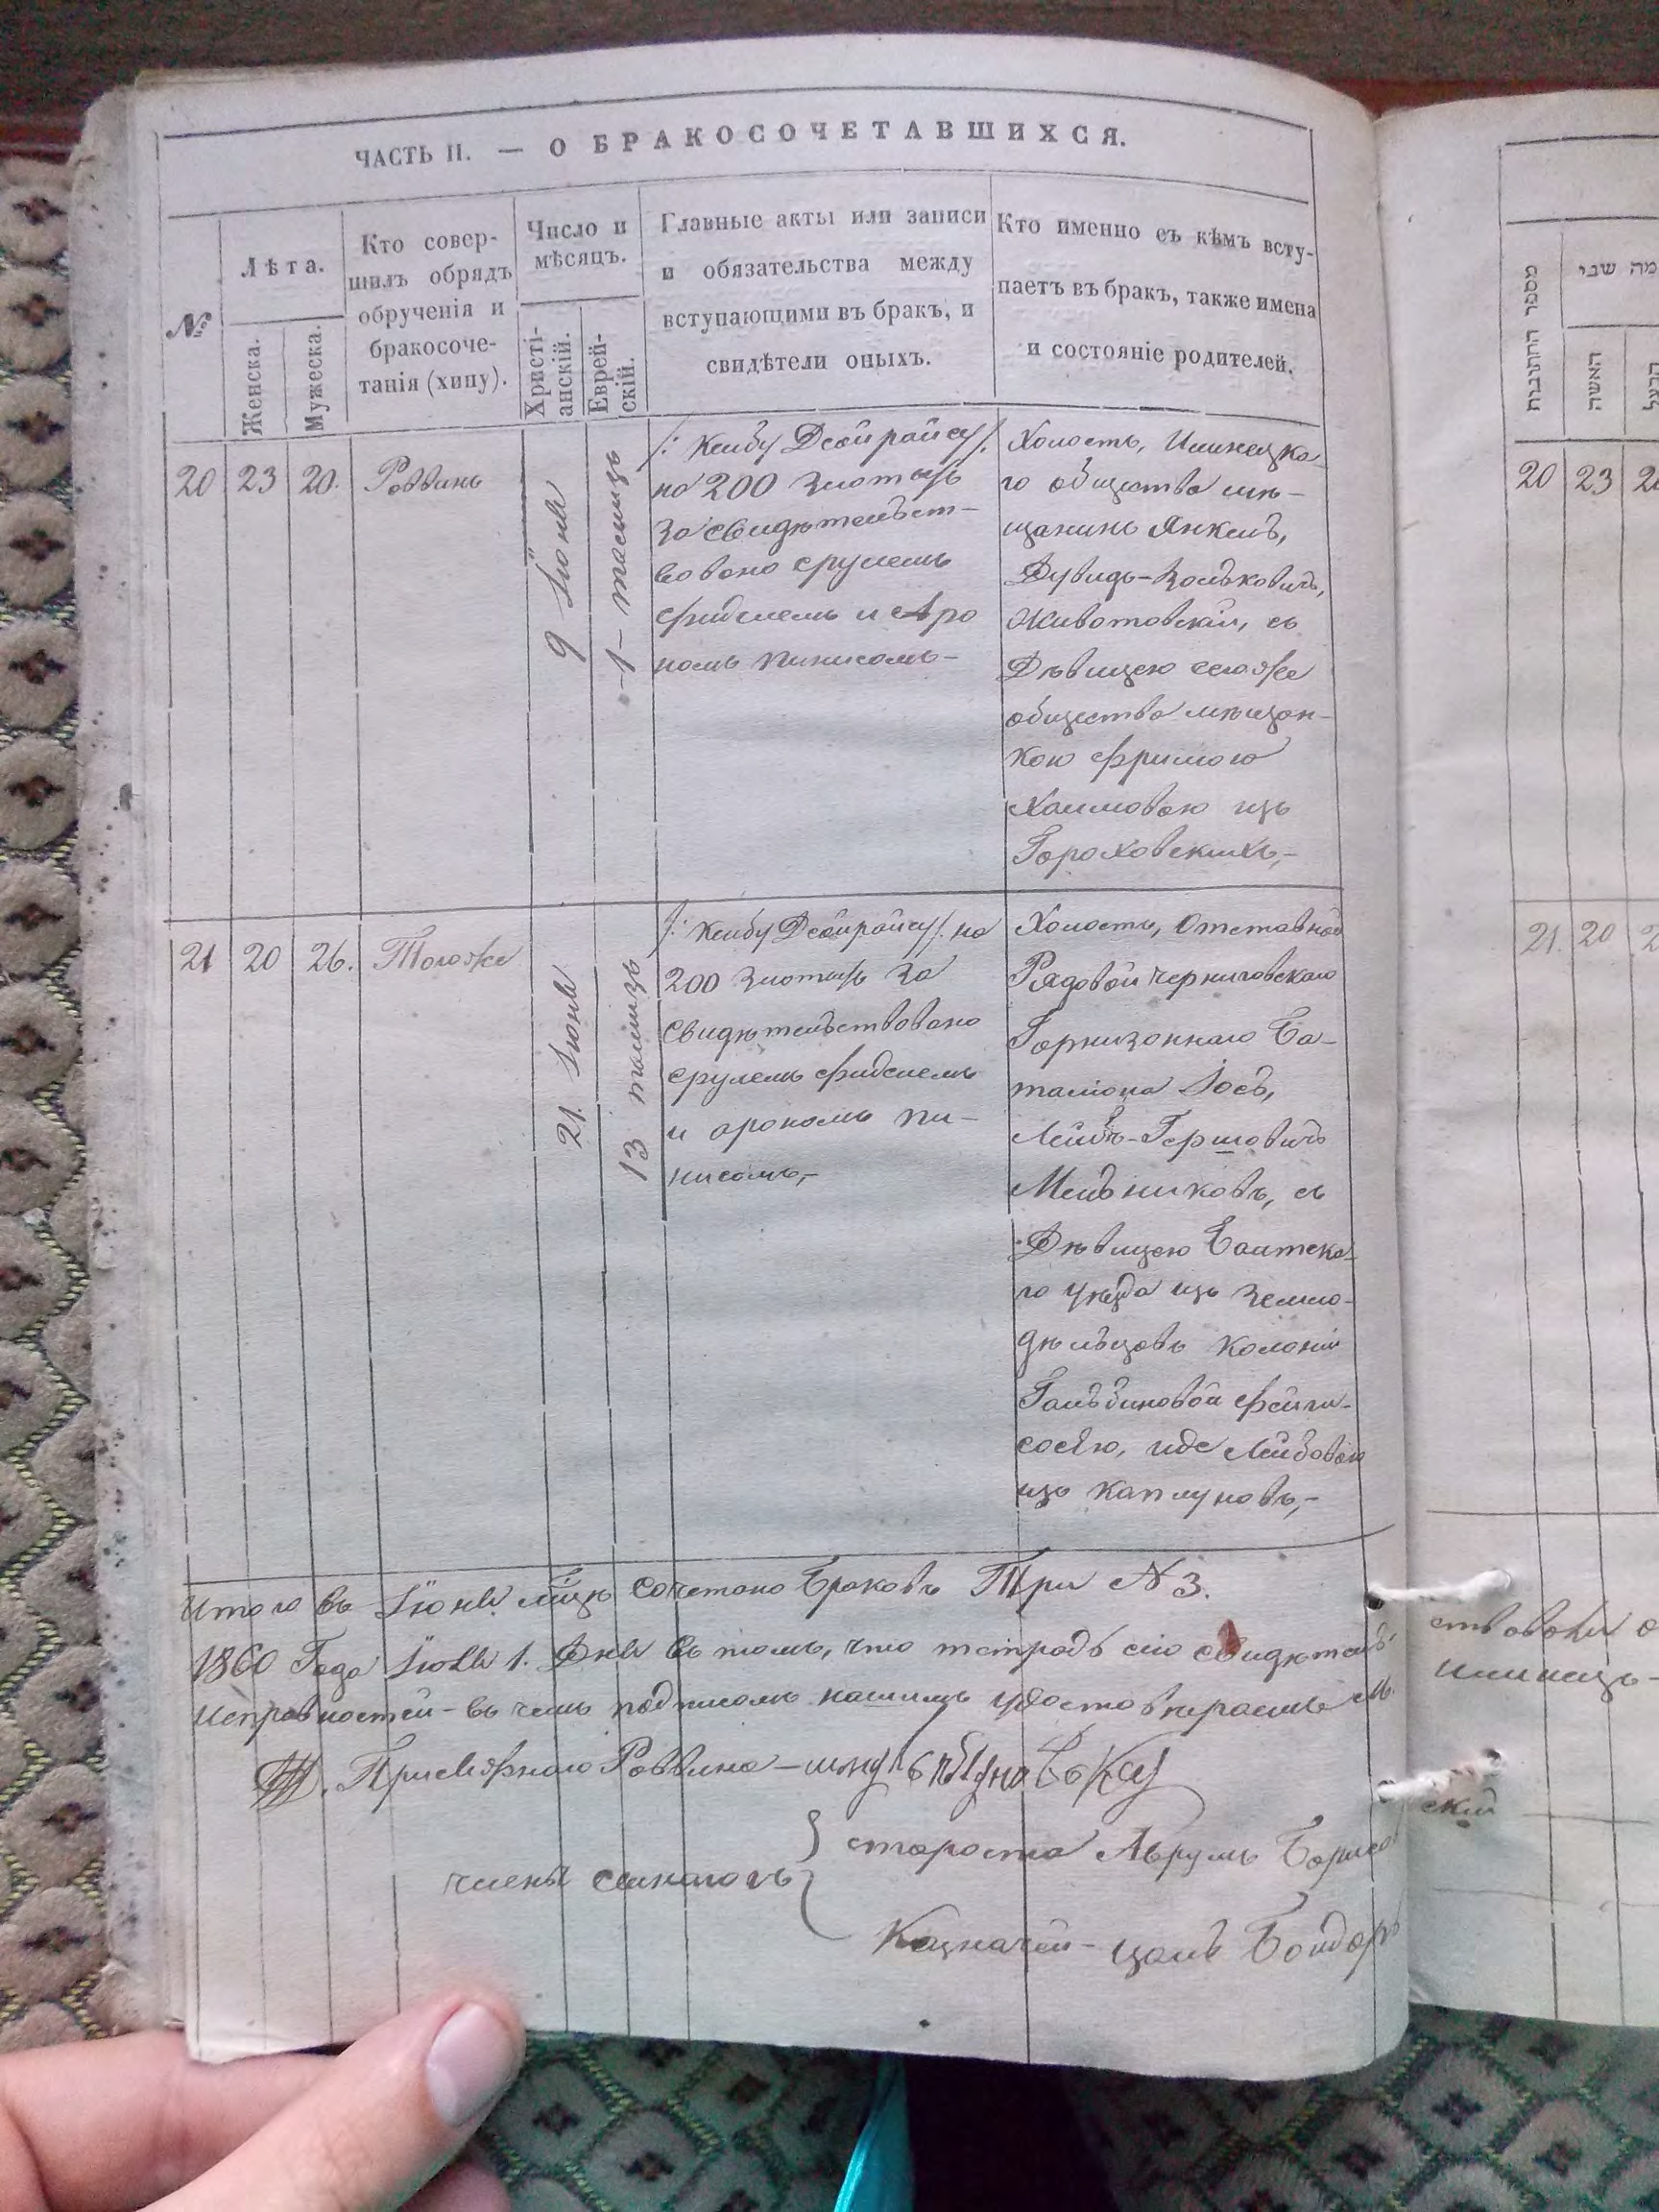 ЧАСТЬ II. — О БРАКОСОЧЕТАВШИХСЯ.
№
Лѣта.
Женска.
Мужеска.
Кто совер-
шилъ обрядъ
обрученія и
бракосоче-
танія (хипу).
Число и
мѣсяцъ.
Христі-
анскій.
Еврей-
скій.
Главные акты или записи
и обязательства между
вступающими въ бракъ, и
свидѣтели оныхъ.
Кто именно съ кѣмъ всту-
паетъ въ бракъ, также имена
и состояніе родителей.
20
23
20.
Раввинъ
9 Іюня
1 - тамизъ
/: Ксибу Дсойрайсу :/
на 200 злотыхъ
засвидѣтельст-
вовано Срулемъ
Фидслемъ и Аро
номъ Пинисомъ-
Холостъ, Илинецка-
го общества мѣ-
щанинъ Янкель,
Дувидъ-Зольковичъ,
Животовскій, съ
Дѣвицею сегоже
общества мѣщан-
кою Фримою
Хаимовою изъ
Гороховскихъ,-
21
20
26.
Тогоже
21. Іюня
13 тамизъ
/: Ксибу Дсойрайсу :/ на
200 злотыхъ за
свидѣтельствовано
Срулемъ Фидслемъ
и Арономъ Пи-
нисомъ,-
Холостъ, Отставной
Рядовой Черниговскаго
Гарнизоннаго Ба-
таліона Іось,
Лейбъ-Гершовичъ
Мельниковъ, съ
Дѣвицею Балтска-
го уѣзда изъ Земле-
дѣльцовъ колоніи
Гальбиновой Фейги-
сосею, Лейбовою
изъ Каплуновъ,-
Итого въ Іюнѣ мѣцѣ сочетано Браковъ Три N 3.
1860 Года Іюля 1. Дня въ томъ, что тетрадь сію свидѣтель-
исправностей - въ чемъ подписомъ нашимъ удостовѣраемъ
Присяжнаго Раввина -
члены синагогъ
староста Аврумъ Борисов
Казначей - Бондарь
מספר החתונות
מה שני
האשה
הבעל
20
23
21.
20
ствовали
Илинец-
скій